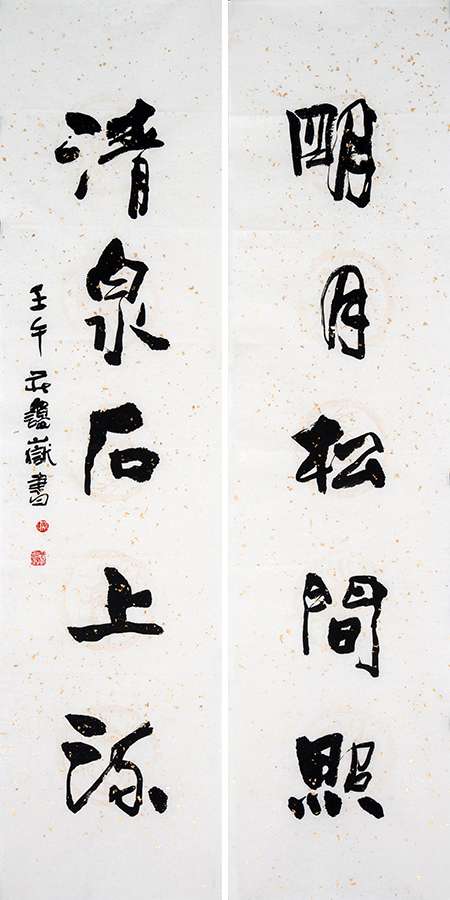 明月松間照
清泉石上流
壬午
書